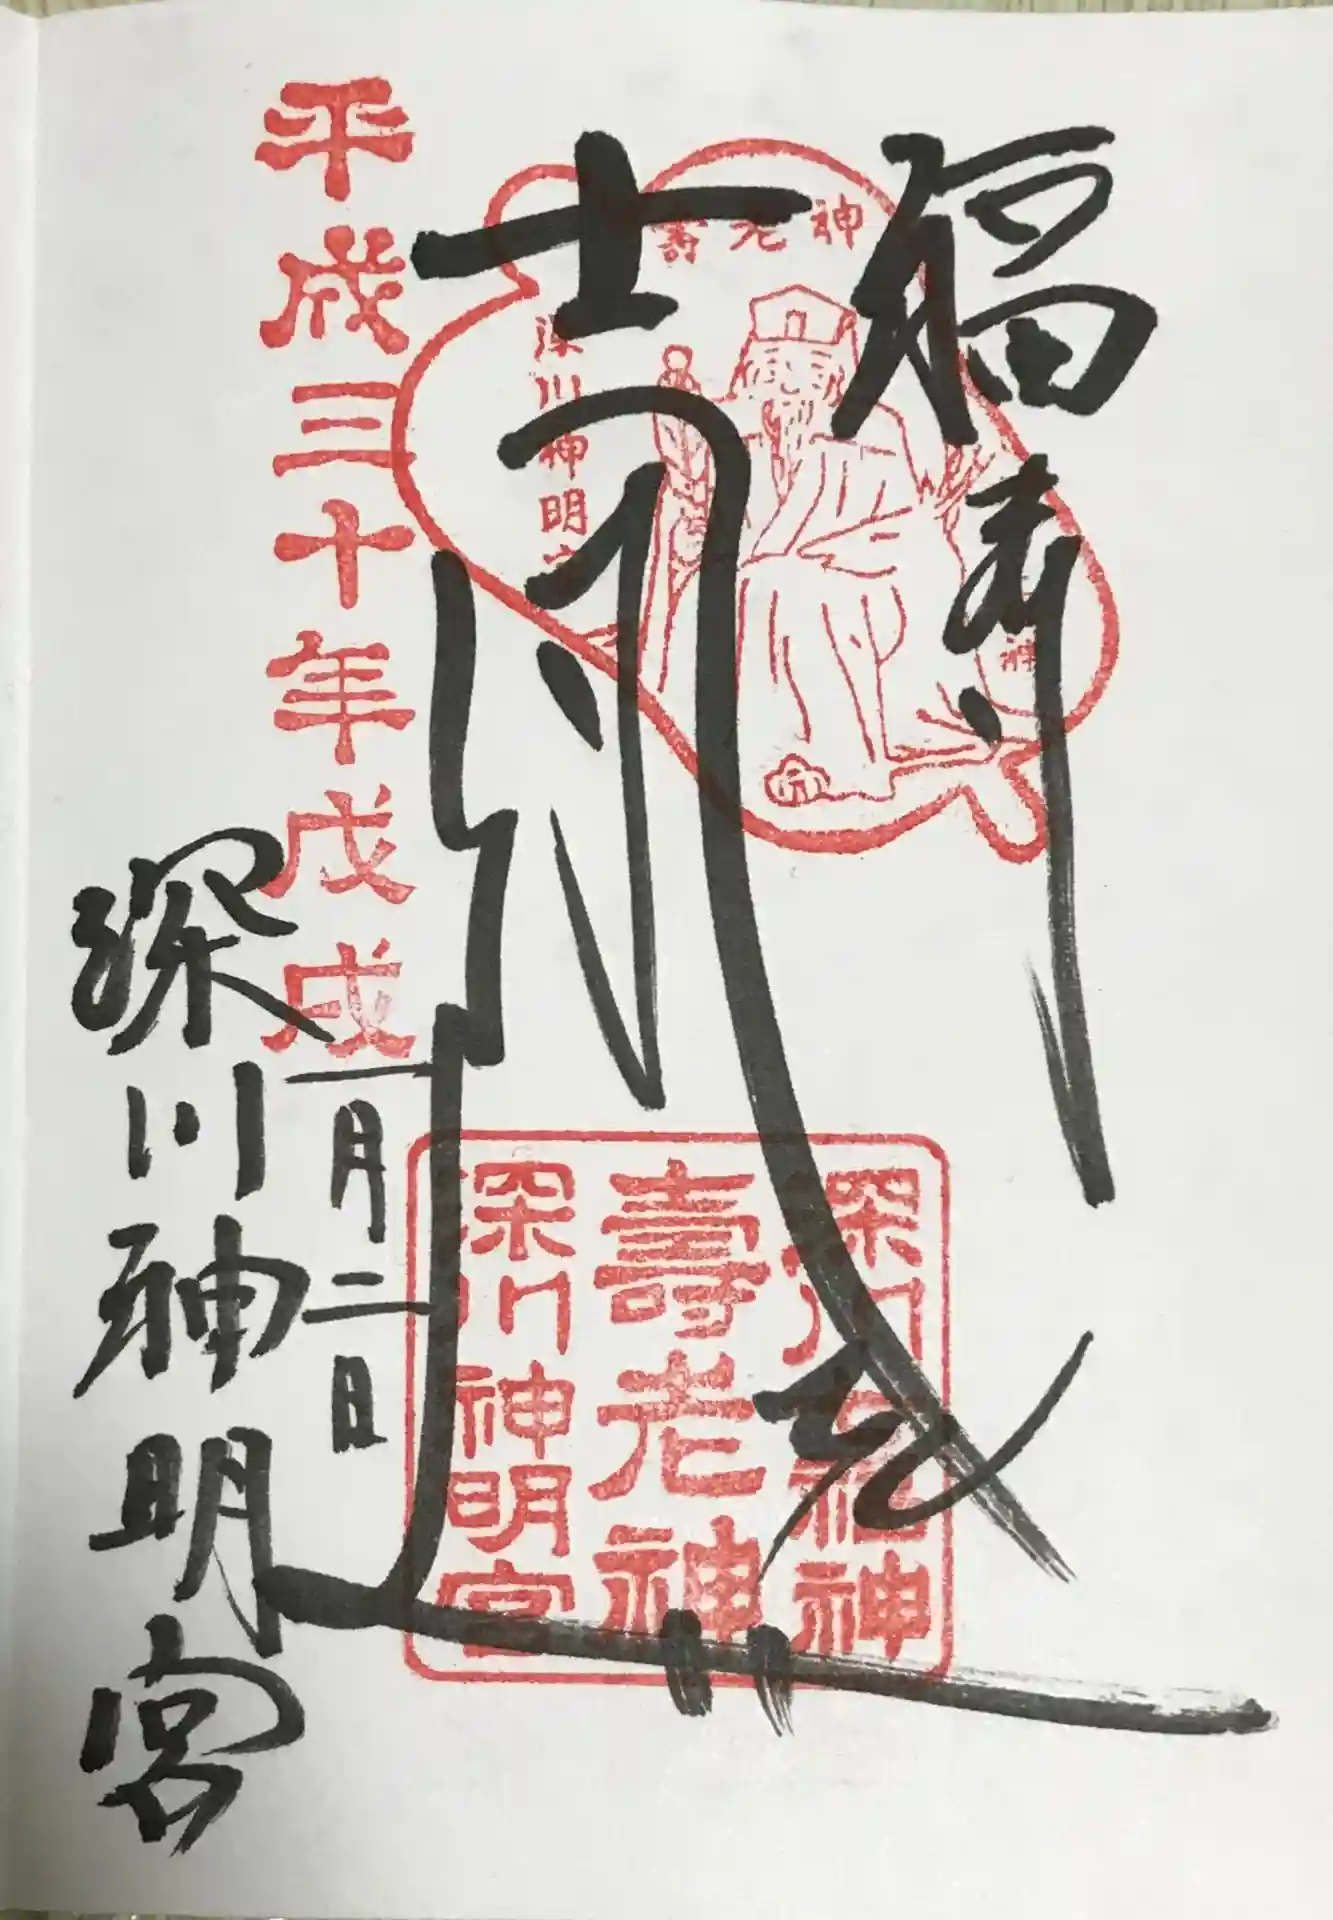 福寿
壽老神
深川神明宮
深川七福神
壽老神
深川神明宮
平成三十年戊戌
一月二日
深川神明宮